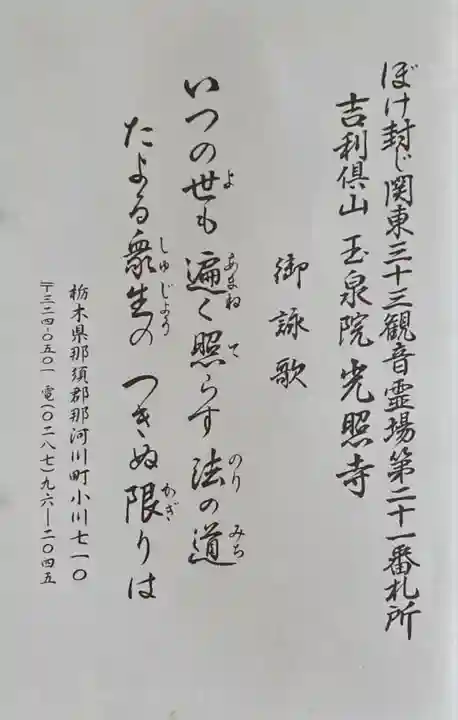 ぼけ封じ関東三十三観音霊場第二十一番札所
吉利倶山 玉泉院 光照寺
御詠歌
いつの世も 遍く照らす 法の道
よ あまね て のり みち
たよる衆生の つきぬ限りは
しゅじょう かぎ
栃木県那須郡那珂川町小川七一〇
〒三二四-〇五〇一 電(〇二八七)九六-二〇四五